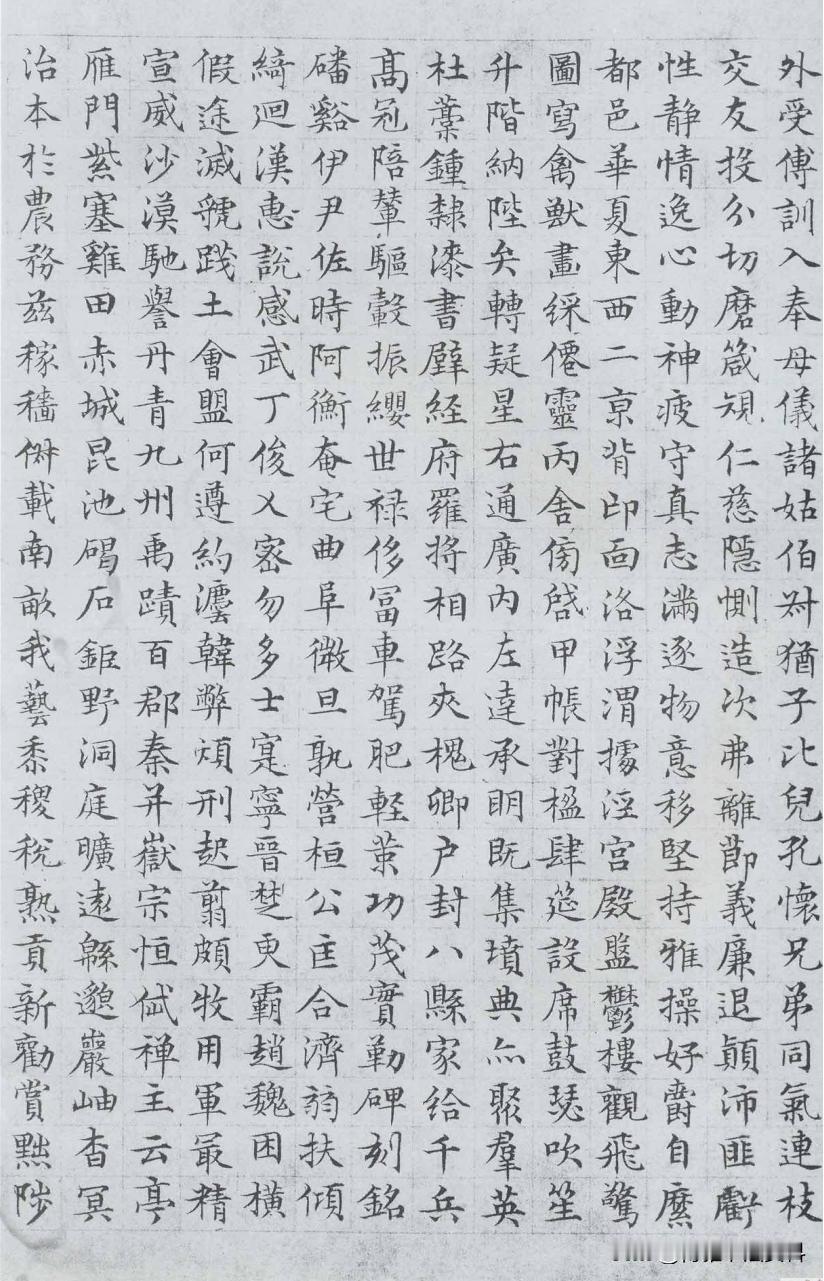 外受傅訓入奉母儀諸姑伯叔猶子比兒孔懷兄弟同氣連枝
交友投分切磨箴規仁慈隱惻造次弗離節義廉退顛沛匪虧
性静情逸心動神疲守真志滿逐物意移堅持雅操好爵自縻
都邑華夏東西二京背邙面洛浮渭據涇宫殿盤鬱樓觀飛驚
圖寫禽獸畫綵僊靈丙舍傍啓甲帳對楹肆筵設席鼓瑟吹笙
升階納陛弁轉疑星右通廣内左達承明既集墳典亦聚羣英
杜藁鍾隸漆書壁經府羅將相路夾槐卿户封八縣家給千兵
髙冠陪輦驅轂振纓世禄侈冨車駕肥輕策功茂實勒碑刻銘
磻谿伊尹佐時阿衡奄宅曲阜微旦孰營桓公匡合濟弱扶傾
綺迴漢惠說感武丁俊乂密勿多士寔寧晉楚更霸趙魏困橫
假途滅虢踐土會盟何遵約灋韓弊煩刑起翦頗牧用軍最精
宣威沙漠馳譽丹青九州禹蹟百郡秦并嶽宗恒岱禪主云亭
雁門紫塞雞田赤城昆池碣石鉅野洞庭曠遠緜邈巖岫杳冥
治本於農務兹稼穡俶載南畝我藝黍稷稅熟貢新勸賞黜陟